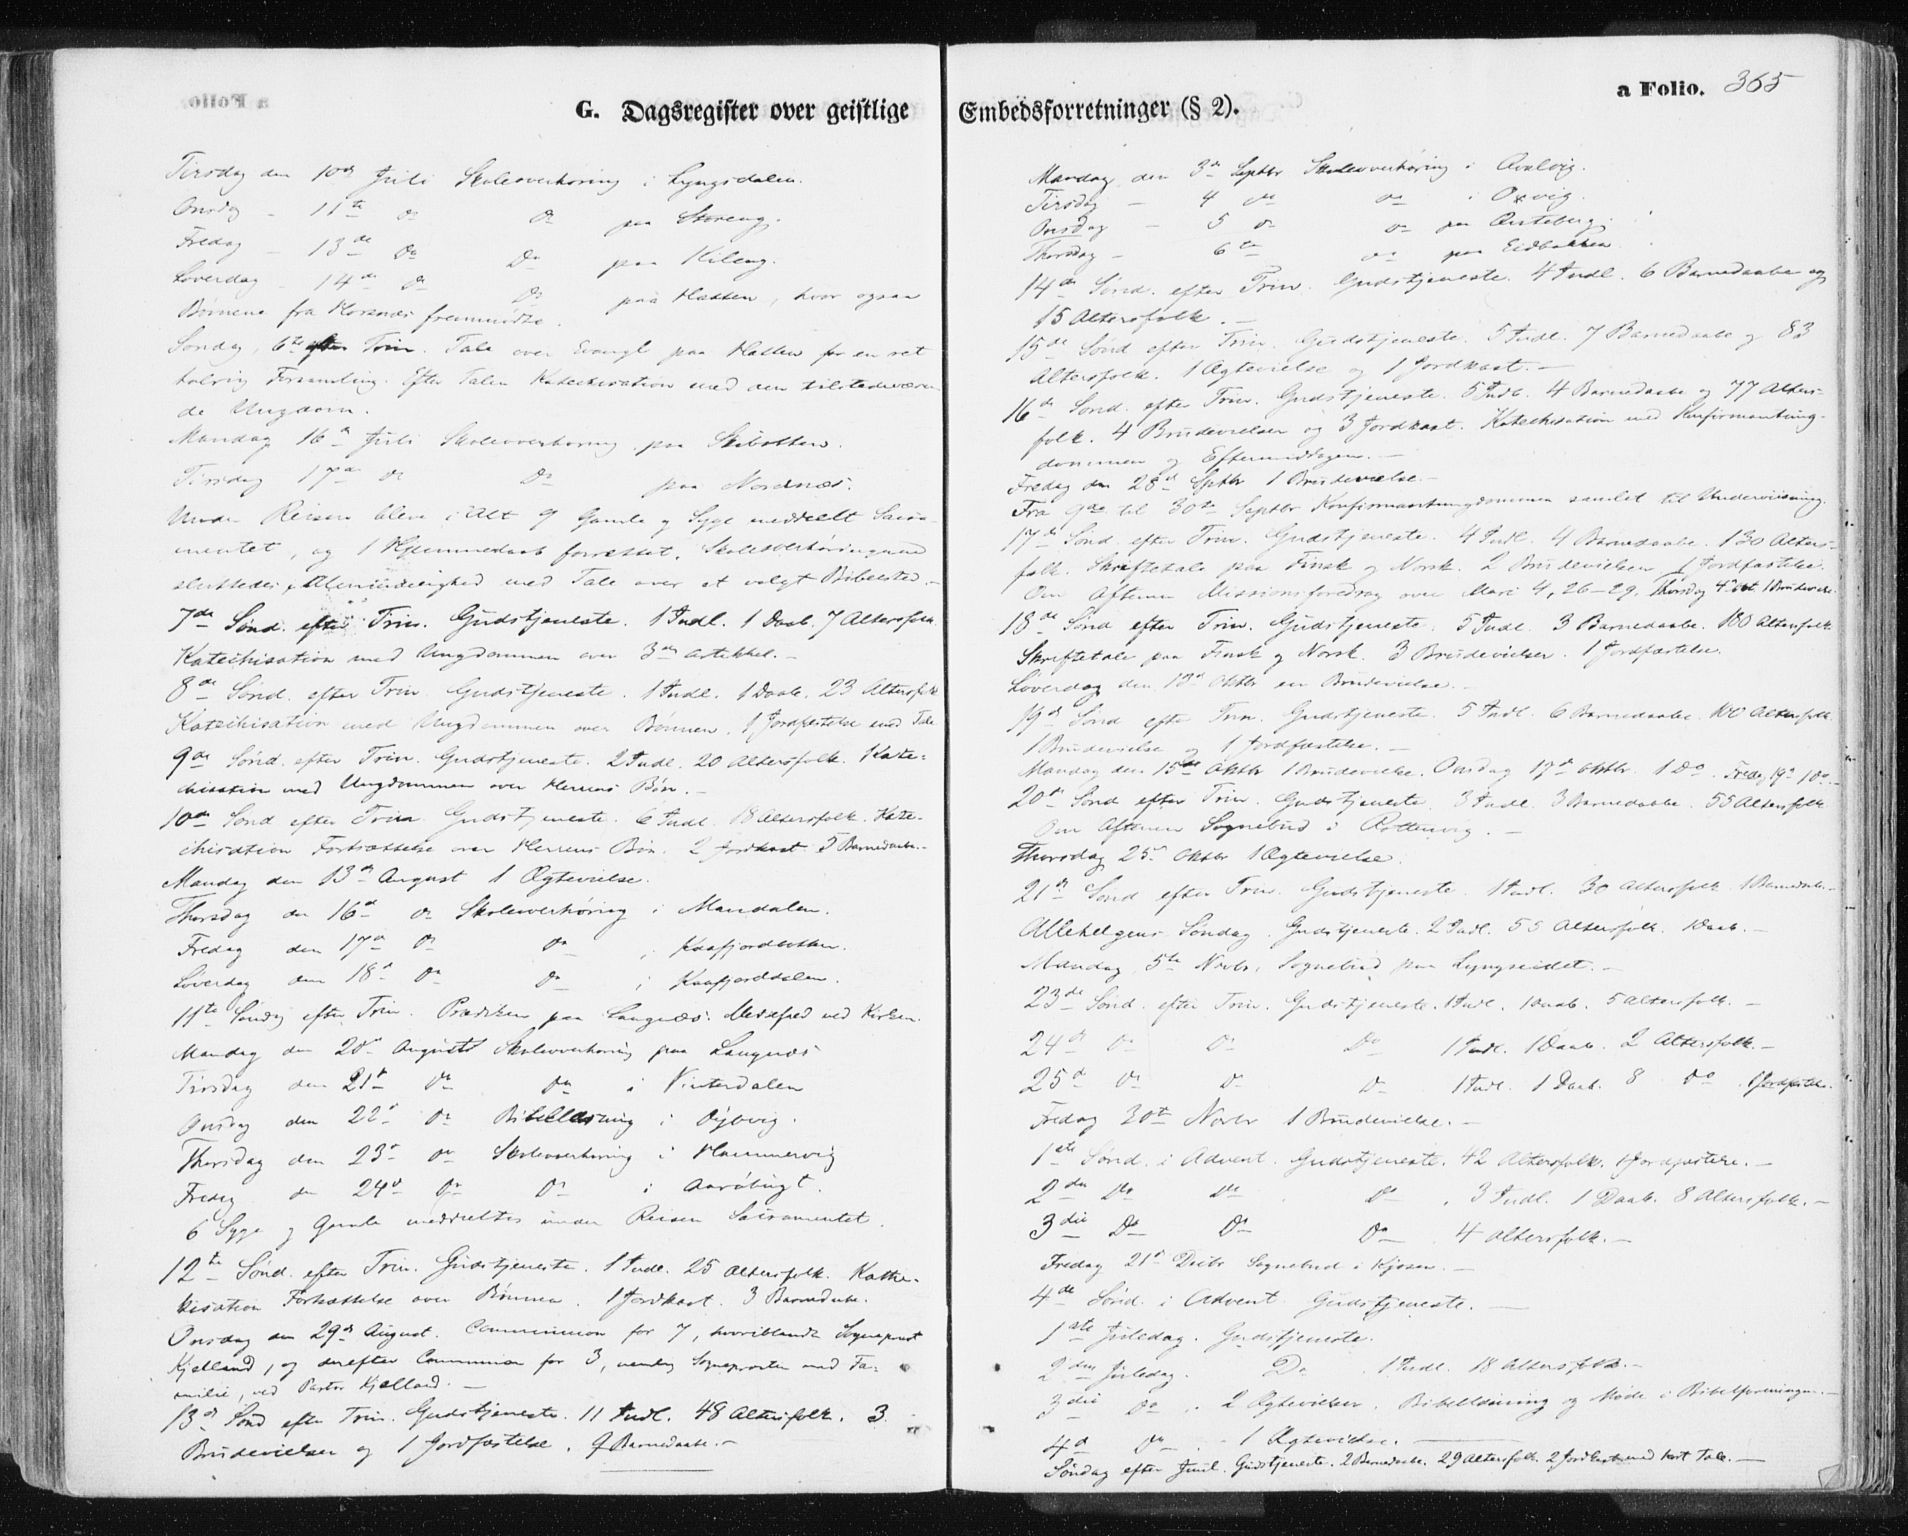 G. Dagsregister over geistlige
Tirsdag den 10de Juli Skoleoverhøring i Lyngsdalen.
Onsdag - 11te Do Do paa Storeng.
Fredag - 13de Do Do paa Kileng.
Løverdag - 14de Do Do paa Hatten, hvor ogsaa
Børnene fra Horsnæs fremmødte.
Søndag, 6te efter Trin. Tale over Evangl paa Hatten for en ret
talrig Forsamling. Efter Talen Katechisation med den tilstedeværen
de Ungdom.
Mandag 16de Juli Skoleoverhøring paa Skibotten.
Tirsdag 17de Do Do paa Nordnæs.
Under Reisen bleve i Alt 9 Gamle og Syge meddeelt Sacra-
mentet, og 1 Hjemmedaab forrettet. Skoleoverhøringerne
sluttedes i Almindelighed med Tale over et valgt Bibelsted.-
7de Sønd. efter Trin. Gudstjeneste. 1 Indl. 1 Daab. 7 Altersfolk.
Katechisation med Ungdommen over 3die Artikkel.-
8de Sønd. efter Trin. Gudstjeneste. 1 Indl. 1 Daab. 23 Altersfolk
Katechisation med Ungdommen over Bønnen. 1 Jordfæstelse med Tale
9de Sønd. efter Trin. Gudstjeneste. 2 Indl. 20 Altersfolk. Kate-
chisation med Ungdommen over Herrens Bøn.-
10de Sønd efter Trin Gudstjeneste. 6 Indl. 18 Altersfolk. Kate-
chisation Fortsættelse over Herrens Bøn. 2 Jordkast. 5 Barnedaabe.-
Mandag den 13de August 1 Ægtevielse.
Thorsdag den 16de Do Skoleoverhøring i Mandalen.
Fredag den 17de Do Do i Kaafjordbotten.
Løverdag den 18de Do Do i Kaafjorddalen.
11te Søndag efter Trin. Prædiken paa Langnæs. Messefred ved Kirken.
Mandag den 20de August Skoleoverhøring paa Langnæs
Tirsdag den 21de Do Do i Vinterdalen
Onsdag den 22de Do Bibellæsning i
Thorsdag den 23de Do Skoleoverhøring i Hammervig
Fredag den 24de Do Do i Aarøbugt.
6 Syge og Gamle meddeeltes under Reisen Sacramentet.
12te Sønd. efter Trin. Gudstjeneste. 1 Indl. 25 Altersfolk. Kathe-
kisation Fortsættelse over Bønnen. 1 Jordkast. 3 Barnedaabe.
Onsdag den 29de August. Communion for 7, hvoriblandt Sognepræst
Kjelland, og derefter Communion for 3, nemlig Sognepræsten med Fa-
milie, ved Pastor Kjelland.-
13de Sønd efter Trin. Gudstjeneste. 11 Indl. 48 Altersfolk. 3
Brudevielser og 1 Jordfæstelse. 9 Barnedaabe.-
Embedsforretninger (§ 2).
a Folio. 365
Mandag den 3de Septbr Skoleoverhøring i
Tirsdag - 4 Do Do i Oxvig.
Onsdag - 5 Do Do paa
Thorsdag - 6te Do paa Eidbakken
14de Sønd. efter Trin. Gudstjeneste. 4 Indl. 6 Barnedaabe og
15 Altersfolk.-
15de Sønd efter Trin. Gudstjeneste. 5 Indl. 7 Barnedaabe og 83
Altersfolk. 1 Ægtevielse og 1 Jordkast.-
16de Sønd. efter Trin. Gudstjeneste. 5 Indl. 4 Barnedaabe og 77 Alters-
folk. 4 Brudevielser og 3 Jordkast. Katechisation med Konfirmantung-
dommen og Eftermiddagen.-
Fredag den 28de Septbr 1 Brudevielse.-
Fra 9de til 30te Septbr Konfirmantungdommen samlet til Underviisning.
17de Sønd. efter Trin. Gudstjeneste. 4 Indl. 4 Barnedaabe. 130 Alters-
folk. Skriftetale paa Finsk og Norsk. 2 Brudevielser 1 Jordfæstelse.
Om Aftenen Missionsforedrag over Marc 4, 26-29. Thorsdag 4de Oct. 1 Brudevielse.
18de Sønd efter Trin. Gudstjeneste. 5 Indl. 3 Barnedaabe. 100 Altersfolk.
Skriftetale paa Finsk og Norsk. 3 Brudevielser. 1 Jordfæstelse.
Løverdag den 13de Oktbr en Brudevielse.-
19de Sønd efter Trin. Gudstjeneste. 5 Indl. 6 Barnedaabe. 100 Altersfolk.
1 Brudevielse og 1 Jordfæstelse.-
Mandag den 15de Oktbr 1 Brudevielse. Onsdag 17de Oktbr. 1 Do. Fredag 19de 1 Do.-
20de Sønd efter Trin. Gudstjeneste. 3 Indl. 3 Barnedaabe. 55 Altersfolk
Om Aftenen Sognebud i Rottenvig.-
Thorsdag 25de Oktbr 1 Ægtevielse.
21de Sønd efter Trin. Gudstjeneste. 1 Indl. 30 Altersfolk 1 Barnedaab.-
Allehelgens Søndag. Gudstjeneste. 2 Indl. 55 Altersfolk. 1 Daab.-
Mandag 5te Novbr. Sognebud paa Lyngseidet.-
23de Sønd. efter Trin. Gudstjeneste. 1 Indl. 1 Daab. 5 Altersfolk.-
24de Do Do Do 1 Indl. 1 Daab. 2 Altersfolk.-
25de Do Do Do 1 Indl. 1 Daab. 8 Do 1 Jordfæstelse.
Fredag 30te Novbr 1 Brudevielse.-
1ste Sønd. i Advent. Gudstjeneste. 42 Altersfolk. 1 Jordfæstelse.-
2den Do Do Do . 3 Indl. 1 Daab. 8 Altersfolk.-
3die Do Do Do . 4 Altersfolk.-
Fredag 21de Decbr Sognebud i Kjosen.-
4de Sønd. i Advent Gudstjeneste.-
1ste Juledag. Gudstjeneste.
2den Juledag. Do 1 Indl. 18 Altersfolk.-
3die Do . 2 Ægtevielser. Bibellæsning og Møde i Bibelforeningen.-
4de Do - 1 Ægtevielse.-
Søndag efter Juul. Gudstjeneste. 2 Barnedaabe. 29 Altersfolk. 2 Jordkast med kort Tale.-